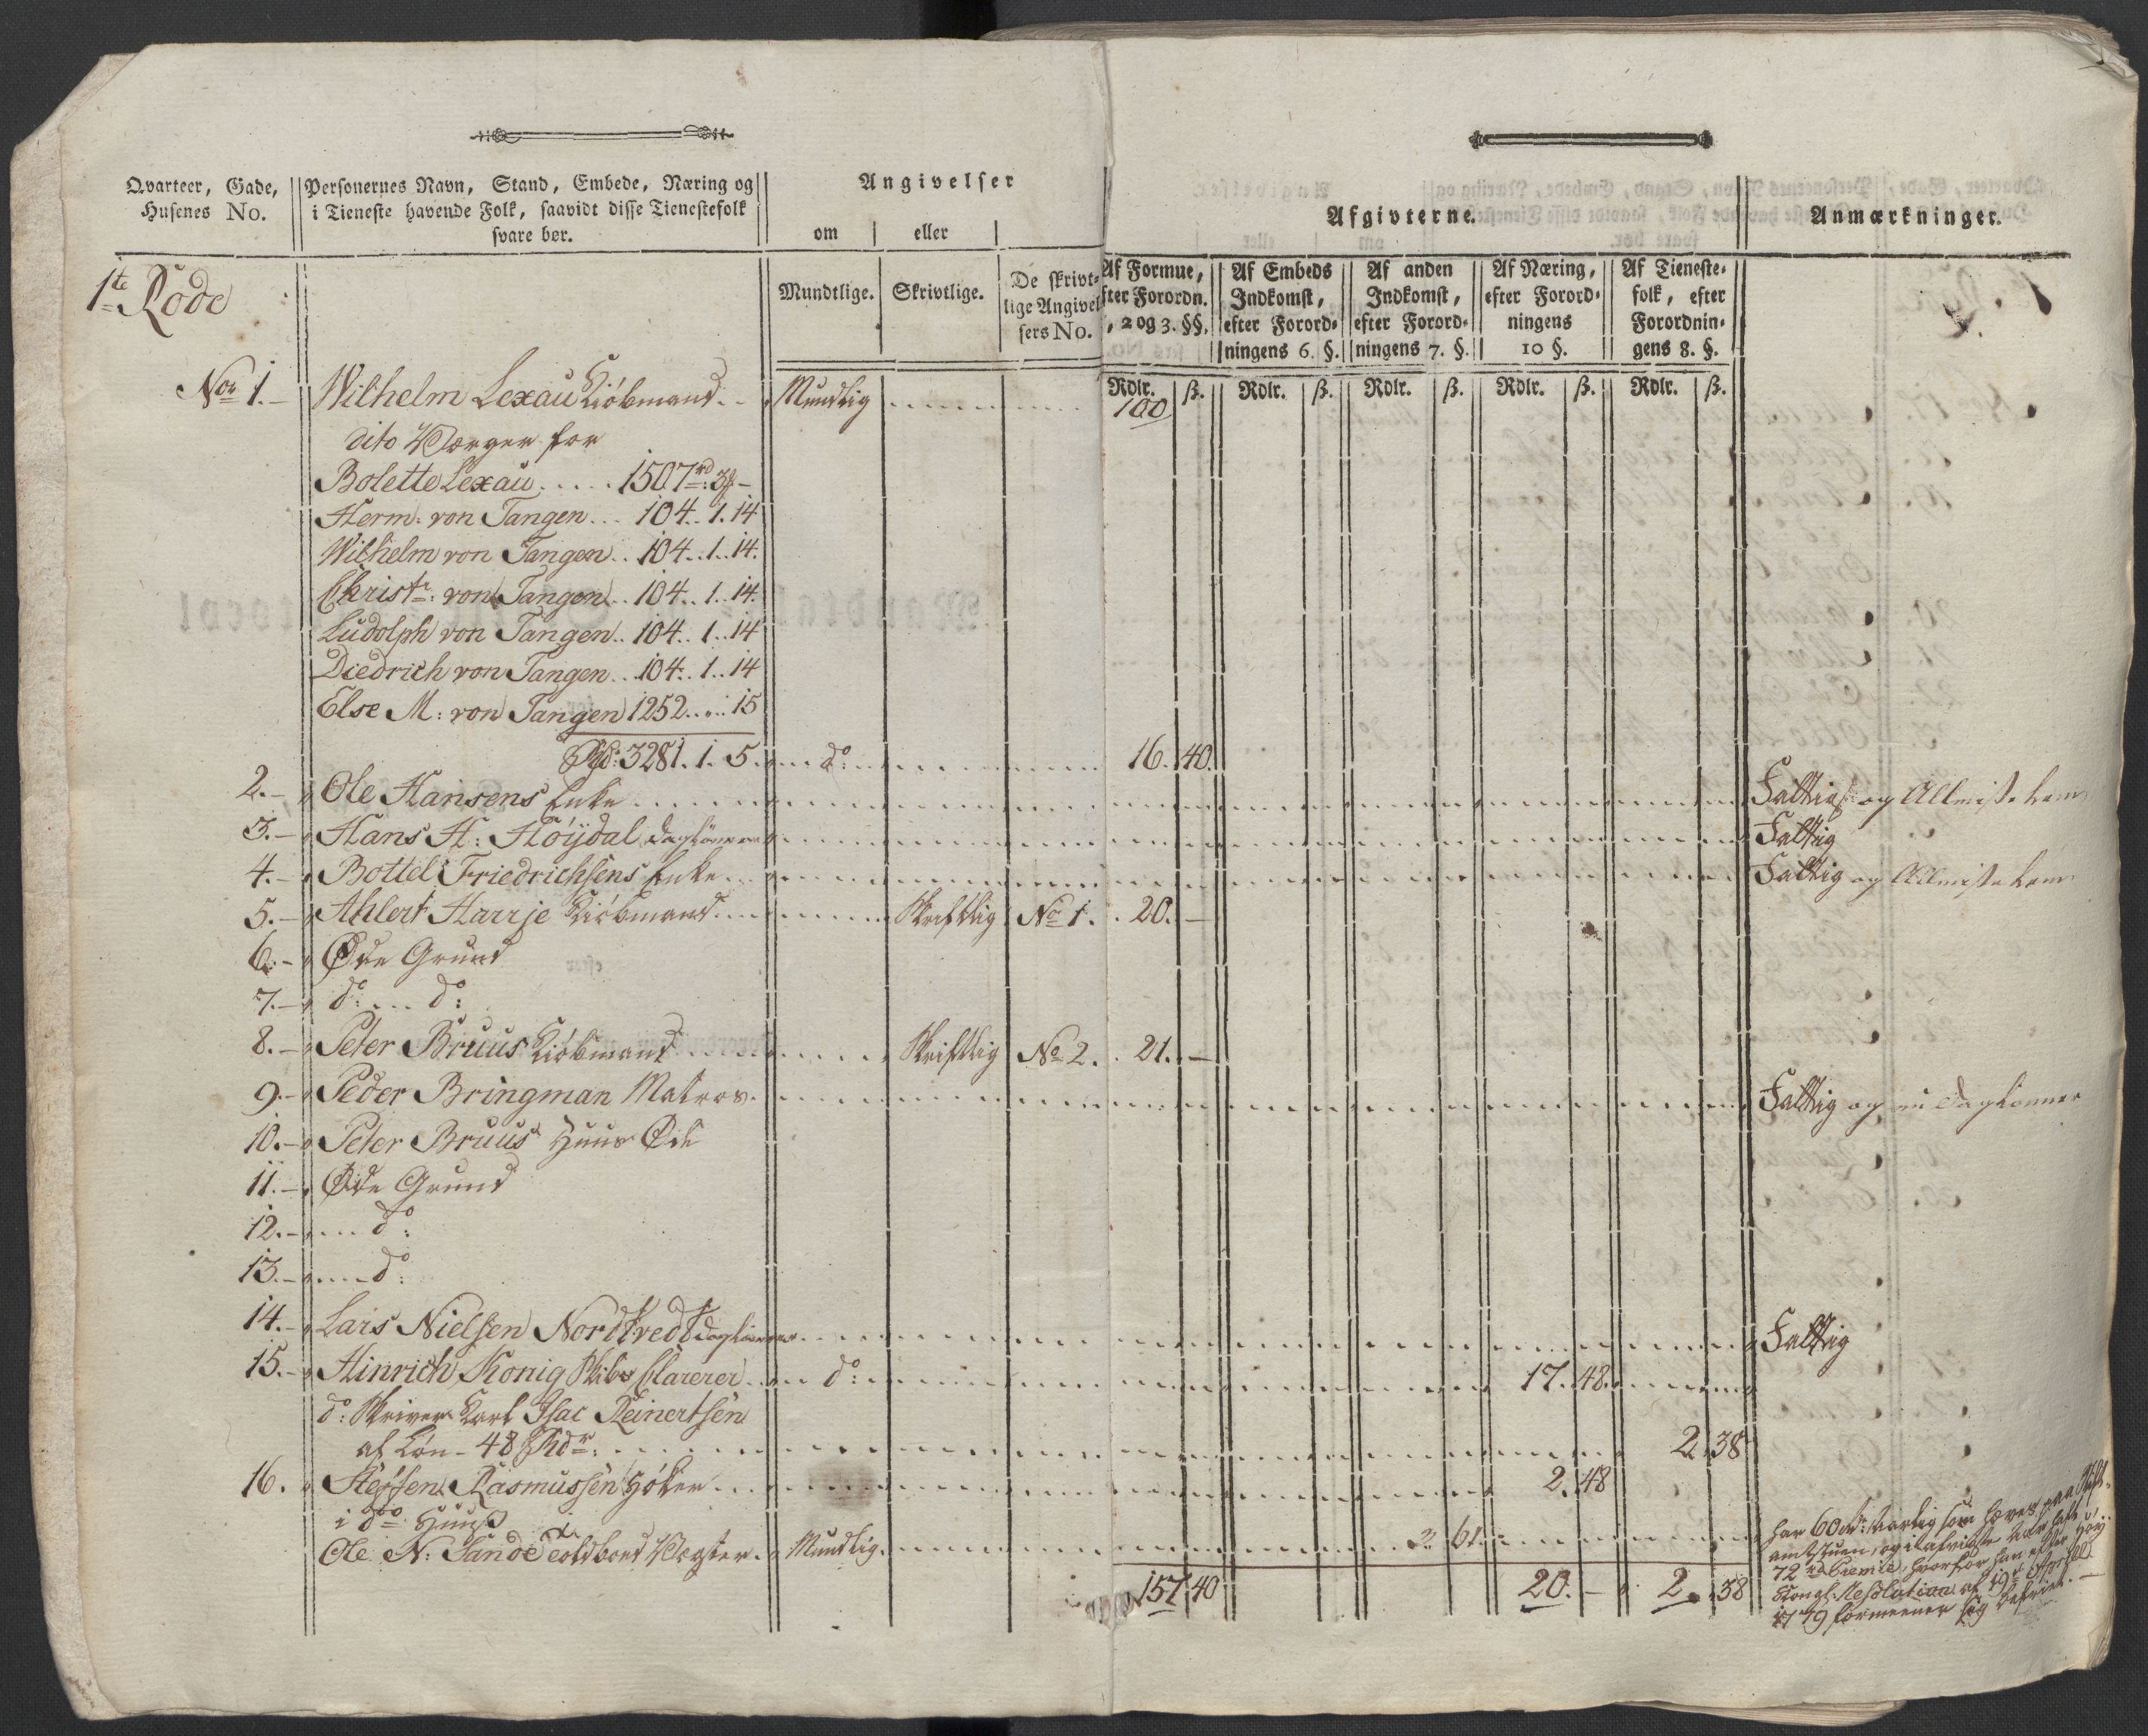 Qvarteer, Gade, Husenes No.
Personernes Navn, Stand, Embede, Næring og i Tieneste havende Folk, saavidt disse Tienestefolk svare bør.
Angivelser
om eller
Mundtlige. Skrivtlige. De skrivtlige Angivelsers No.
Afgivterne.
Af Formue, efter Forordn. , 2 og 3. §§.
Af Embeds Indkomst, efter Forordningens 6. §.
Af anden Indkomst, efter Forordningens 7. §.
Af Næring, efter Forordningens 10 §.
Af Tienestefolk, efter Forordningens 8. §.
Anmærkninger.
Rdlr. ß. Rdlr. ß. Rdlr. ß. Rdlr. ß. Rdlr. ß.
1te Rode
No 1. Wilhelm Lexau Kiöbmand.. Mundtlig 100
dito Værger for
Bolette Lexau..... 1507 rd: 3 ß -
Herm: von Tangen... 104.. 1. 14
Wilhelm von Tangen.. 104.. 1.. 14.
Christ: von Tangen.. 104.. 1.. 14.
Ludolph von Tangen.. 104.. 1.. 14
Diedrich von Tangen.. 104.. 1.. 14
Else M: von Tangen 1252..... 15
3281. 1. 5. do 16. 40.
2. Ole Hansens Enke Fattig og Allmisse Lem
3. Hans H: Höÿdal Daglönner Fattig
4. Bottel Friedrichsens Enke Fattig og Allmisse Lem
5. Ahlert Harrje Kiöbmand Skriftlig No 1. 20. -
6. Øde Grund
7. do .... do:
8. Peter Bruus Kiöbmand Skriftlig No 2. 21. -
9. Peder Bringman Matros. Fattig og en Daglönner
10. Peter Bruus Huus Øde
11. Øde Grund
12. .... do:
13. .... do:
14. Lars Nielsen Nordtvedt Daglönner Fattig
15. Hinrich Konig Skibs Clarerer do: 17. 48.
do: Skriver Karl Isac Reinertsen
af Lön - 48 Rdr: 2. 38
16. Steffen Rasmussen Höker 2. 48
i do Huus
Ole N: Sande Toldboed Vægter. Mundtlig. 2 61
har 60 rd: Aarlig som hæves paa Stift-
amtstuen, og
72 rd Premie, hvorfor han efter
Resolution af 19 April
1779 formeener sig befriet. -
157 40 20. - 2. 38